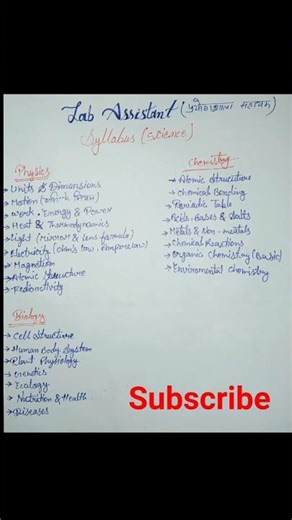 Lab Assistant (प्रयोगशाला सहायक)
Syllabus (Science)
Physics
Units & Dimensions
Motion
Work, Energy & Power
Heat & Thermodynamics
Light (Mirror & lens formula)
Electricity (Ohm's law,
Magnetism
Atomic Structure
Radioactivity
Chemistry
Atomic Structure
Chemical Bonding
Periodic Table
Acids, Bases & Salts
Metals & Non-metals
Chemical Reactions
Organic Chemistry (Basic)
Enviromental Chemistry
Biology
Cell Structure
Human Body System
Plant Physiology
Genetics
Ecology
Nutrition & Health
Diseases
Subscribe